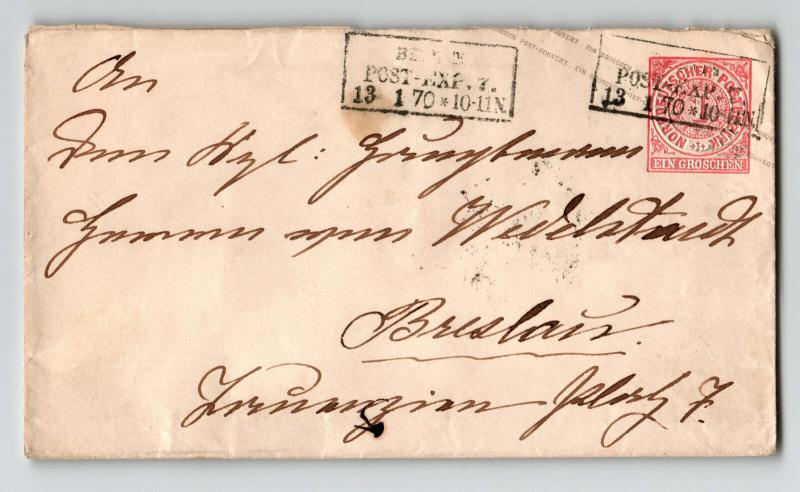 BERLIN
POST-EXP. 7.
13 1 70 * 10-11N.
POST-EXP.
13 1 70 * 10-11N.
NORDDEUTSCHER POSTBEZIRK
EIN GROSCHEN
An
den Kgl: Hauptmann
Herrn von Wedelstaedt
Breslau.
Tauenzien Platz 7.